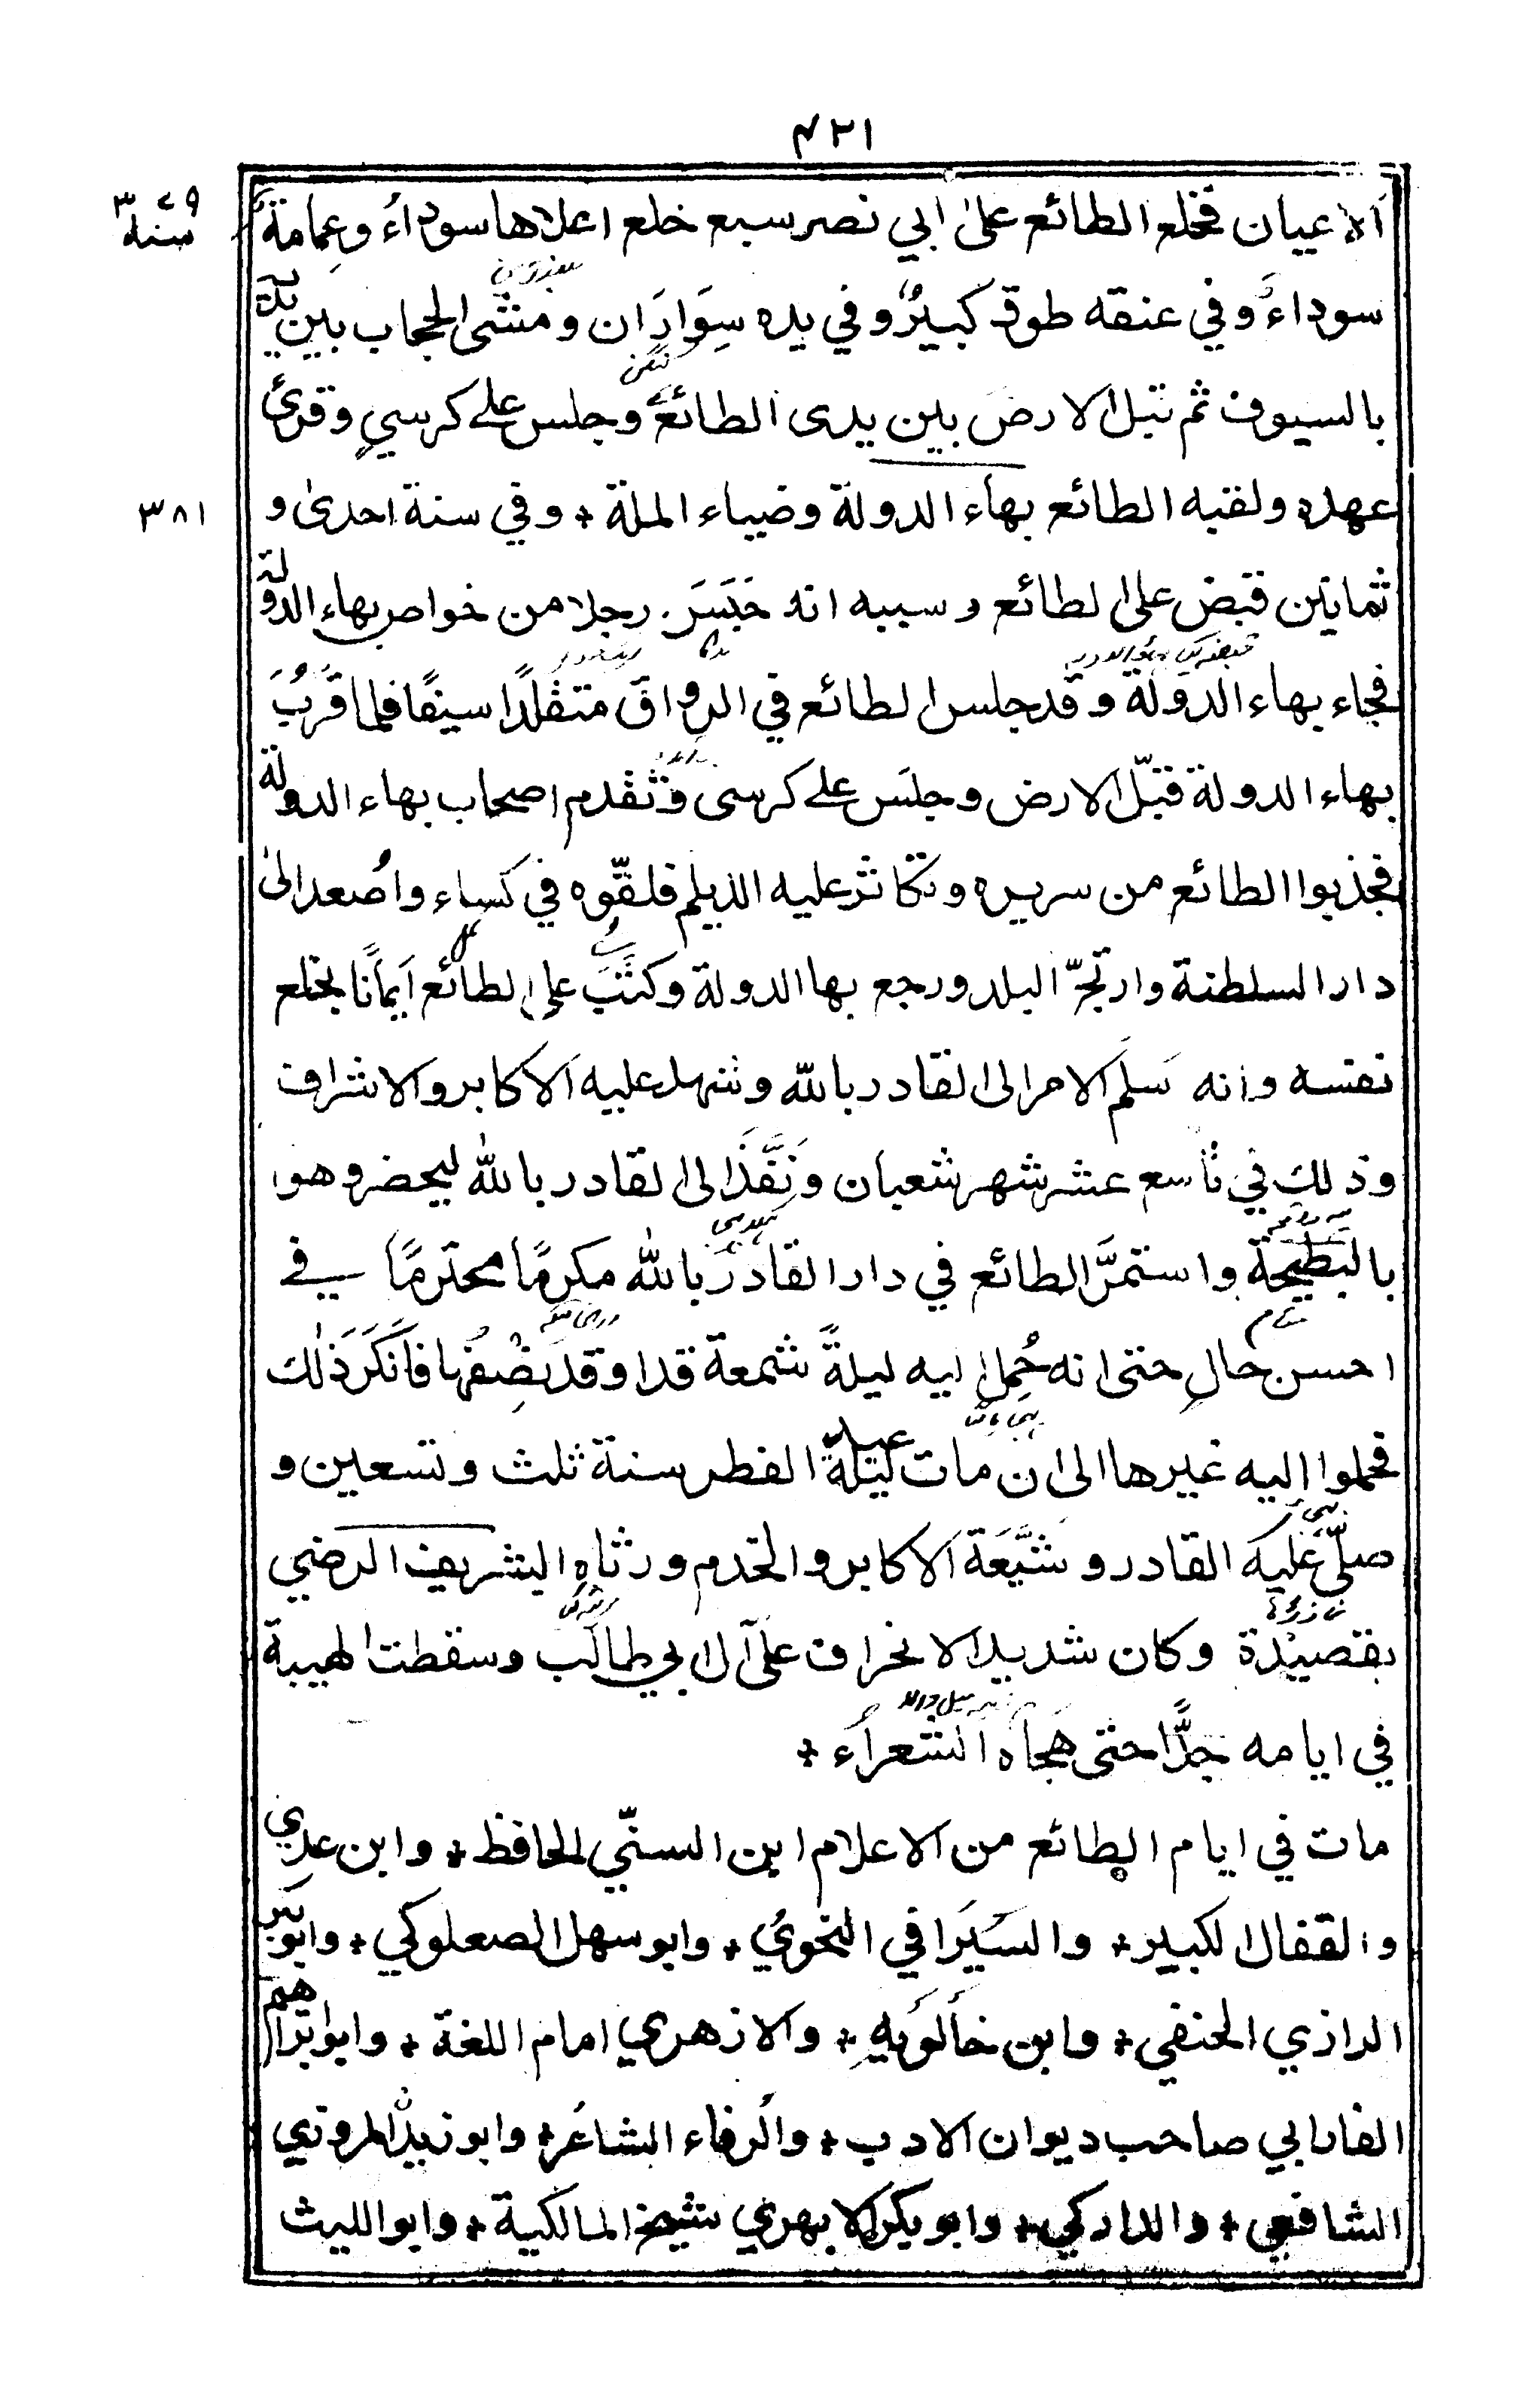 ٤٣١
سنة ٣٧٩
الاعيان فخلع الطائع على ابي نصر سبع خلع اعلاها سوداءُ وعِمامةٌ
سوداءُ وفي عنقه طوق كبيرٌ وفي يده سِوَارَان ومشى الحجاب بين يديه
بالسيوف ثم قبل الارضَ بين يدى الطائع وجلس على كرسيٍ وقرئ
عهده ولقبه الطائع بهاء الدولة وضياء الملة + وفي سنة احدى و
٣٨١
ثمانين قبض على الطائع وسببه انه حَبَسَ رجلا من خواص بهاء الدولة
فجاء بهاء الدولة وقد جلس الطائع في الرواق متقلّدًا سيفًا فلما قَرُبَ
بهاء الدولة قبّل الارض وجلَس على كرسى وتقدم اصحاب بهاء الدولة
فجذبوا الطائع من سريره وتكاثر عليه الديلم فلفّوه في كساء واُصعد الى
دار السلطنة وارتجّ البلد ورجع بها الدولة وكتبَ على الطائع اَيمانًا بخلع
نفسه وانه سَلم الامر الى القادر بالله وشهد عليه الاكابر والاشراف
وذلك في تاسع عشر شهر شعبان ونَفَّذَ الى القادر بالله ليحضر وهو
بالبَطِيحة واستمرَّ الطائع في دار القادر بالله مكرمًا محترمًا في
احسن حالٍ حتى انه حُمِل اليه ليلةً شمعة قد اوقد نصفُها فاَنكَرَ ذٰلك
فحملوا اليه غيرها الى ان مات ليلة عيد الفطر سنة ثلث وتسعين و
صلّى عليه القادر وشَيَّعَه الاكابر والخدم ورثاه الشريف الرضي
بقصيدة وكان شديد الانحراف على آل ابي طالب وسقطت الهيبة
في ايامه جدًّا حتى هَجَاه الشعراء +
مات في ايام الطائع من الاعلام ابن السنّي الحافظ + وابن عدي
والقفال الكبير + والسيَرافي النحوي + وابو سهل الصعلوكي + وابو بكر
الرازي الحنفي + وابن خالَويهِ + والازهري امام اللغة + وابو ابراهيم
الفارابي صاحب ديوان الادب + والرفاء الشاعر + وابو زيد المروزي
الشافعي + والداركي + وابو بكر الابهري شيخ المالكية + وابو الليث